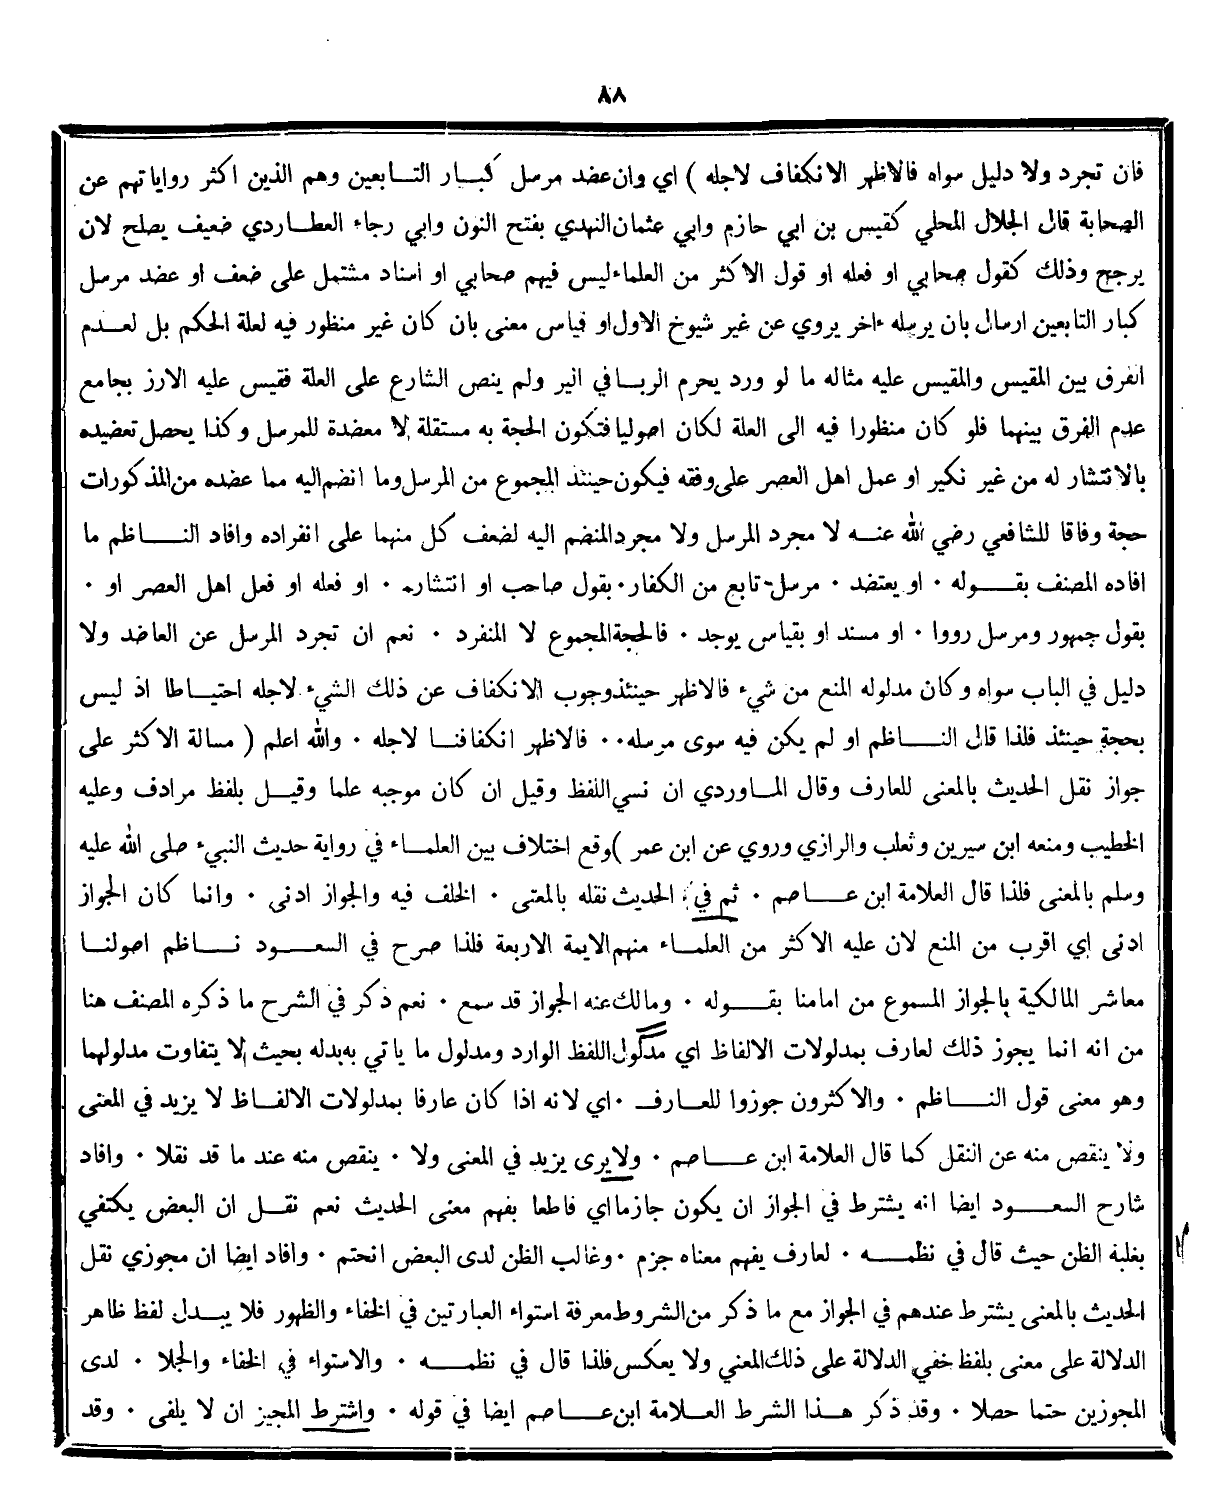 ٨٨
فان تجرد ولا دليل سواه فالاظهر الانكفاف لاجله ) اي وان عضد مرسل كبار التابعين وهم الذين اكثر رواياتهم عن
الصحابة قال الجلال المحلي كقيس بن ابي حازم وابي عثمان النهدي بفتح النون وابي رجاء العطاردي ضعيف يصلح لان
يرجح وذلك كقول صحابي او فعله او قول الاكثر من العلماء ليس فيهم صحابي او اسناد مشتمل على ضعف او عضد مرسل
كبار التابعين ارسال بان يرسله ءاخر يروي عن غير شيوخ الاول او قياس معنى بان كان غير منظور فيه لعلة الحكم بل لعدم
الفرق بين المقيس والمقيس عليه مثاله ما لو ورد يحرم الربا في البر ولم ينص الشارع على العلة فقيس عليه الارز بجامع
عدم الفرق بينهما فلو كان منظورا فيه الى العلة لكان اصوليا فتكون الحجة به مستقلة لا معضدة للمرسل وكذا يحصل تعضيده
بالانتشار له من غير نكير او عمل اهل العصر على وفقه فيكون حينئذ المجموع من المرسل وما انضم اليه مما عضده من المذكورات
حجة وفاقا للشافعي رضي الله عنه لا مجرد المرسل ولا مجرد المنضم اليه لضعف كل منهما على انفراده وافاد الناظم ما
افاده المصنف بقوله ٠ او يعتضد ٠ مرسل تابع من الكفار ٠ بقول صاحب او انتشار ٠ او فعله او فعل اهل العصر او ٠
بقول جمهور ومرسل رووا ٠ او مسند او بقياس يوجد ٠ فالحجة المجموع لا المنفرد ٠ نعم ان تجرد المرسل عن العاضد ولا
دليل في الباب سواه وكان مدلوله المنع من شيء فالاظهر حينئذ وجوب الانكفاف عن ذلك الشيء لاجله احتياطا اذ ليس
بحجة حينئذ فلذا قال الناظم او لم يكن فيه سوى مرسله ٠٠ فالاظهر انكفافنا لاجله ٠ والله اعلم ( مسالة الاكثر على
جواز نقل الحديث بالمعنى للعارف وقال الماوردي ان نسي اللفظ وقيل ان كان موجبه علما وقيل بلفظ مرادف وعليه
الخطيب ومنعه ابن سيرين وثعلب والرازي وروي عن ابن عمر ) وقع اختلاف بين العلماء في رواية حديث النبيء صلى الله عليه
وسلم بالمعنى فلذا قال العلامة ابن عاصم ٠ ثم في الحديث نقله بالمعنى ٠ الخلف فيه والجواز ادنى ٠ وانما كان الجواز
ادنى اي اقرب من المنع لان عليه الاكثر من العلماء منهم الايمة الاربعة فلذا صرح في السعود ناظم اصولنا
معاشر المالكية بالجواز المسموع من امامنا بقوله ٠ ومالك عنه الجواز قد سمع ٠ نعم ذكر في الشرح ما ذكره المصنف هنا
من انه انما يجوز ذلك لعارف بمدلولات الالفاظ اي مدلول اللفظ الوارد ومدلول ما ياتي به بدله بحيث لا يتفاوت مدلولهما
وهو معنى قول الناظم ٠ والاكثرون جوزوا للعارف ٠ اي لانه اذا كان عارفا بمدلولات الالفاظ لا يزيد في المعنى
ولا ينقص منه عن النقل كما قال العلامة ابن عاصم ٠ ولا يرى يزيد في المعنى ولا ٠ ينقص منه عند ما قد نقلا ٠ وافاد
شارح السعود ايضا انه يشترط في الجواز ان يكون جازما اي قاطعا بفهم معنى الحديث نعم نقل ان البعض يكتفي
بغلبة الظن حيث قال في نظمه ٠ لعارف يفهم معناه جزم ٠ وغالب الظن لدى البعض انحتم ٠ وافاد ايضا ان مجوزي نقل
الحديث بالمعنى يشترط عندهم في الجواز مع ما ذكر من الشروط معرفة استواء العبارتين في الخفاء والظهور فلا يبدل لفظ ظاهر
الدلالة على معنى بلفظ خفي الدلالة على ذلك المعنى ولا يعكس فلذا قال في نظمه ٠ والاستواء في الخفاء والجلا ٠ لدى
المجوزين حتما حصلا ٠ وقد ذكر هذا الشرط العلامة ابن عاصم ايضا في قوله ٠ واشترط المجيز ان لا يلفى ٠ وقد